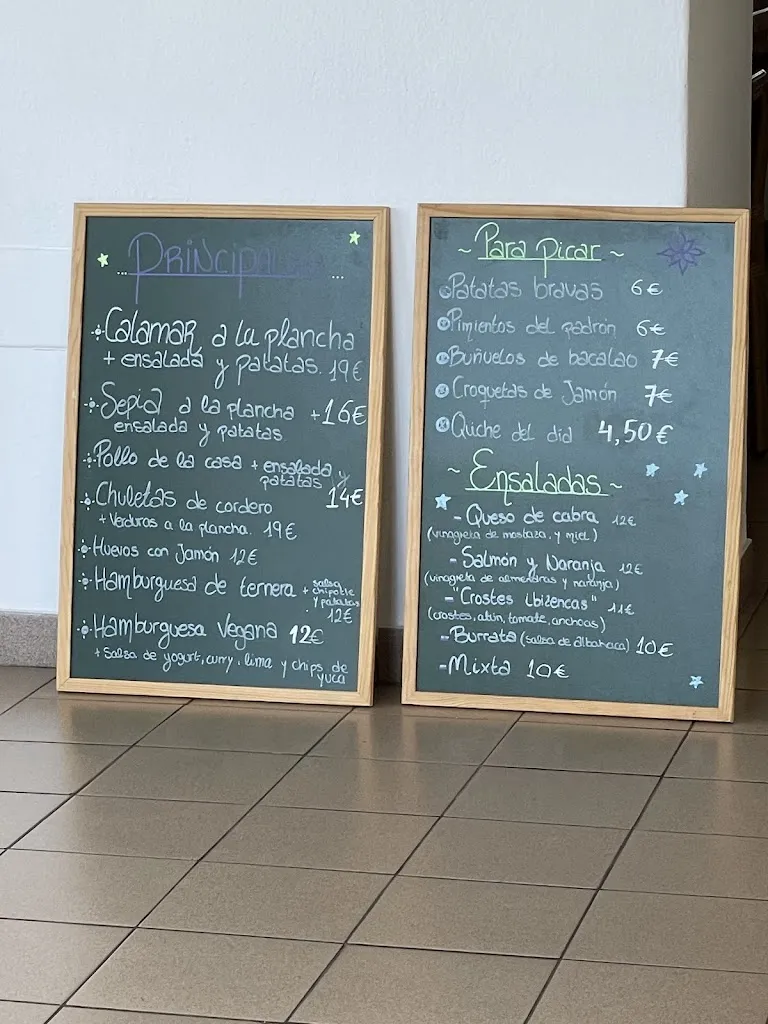 Principales
Calamar a la plancha
+ ensalada y patatas. 19€
Sepia a la plancha +16€
ensalada y patatas
Pollo de la casa + ensalada y
patatas
14€
Chuletas de cordero
+ Verduras a la plancha. 19€
Huevos con Jamón 12€
Hamburguesa de ternera + salsa
chipotle
y patatas
12€
Hamburguesa Vegana 12€
+ Salsa de yogurt, curry, lima y chips de
yuca
~ Para picar ~
Patatas bravas 6€
Pimientos del padrón 6€
Buñuelos de bacalao 7€
Croquetas de Jamón 7€
Quiche del día 4,50€
~ Ensaladas ~
- Queso de cabra 12€
(vinagreta de mostaza, y miel)
- Salmón y Naranja 12€
(vinagreta de almendras y naranja)
- "Crostes ibizencas" 11€
(crostes, atún, tomate, anchoas)
- Burrata (salsa de albahaca) 10€
- Mixta 10€